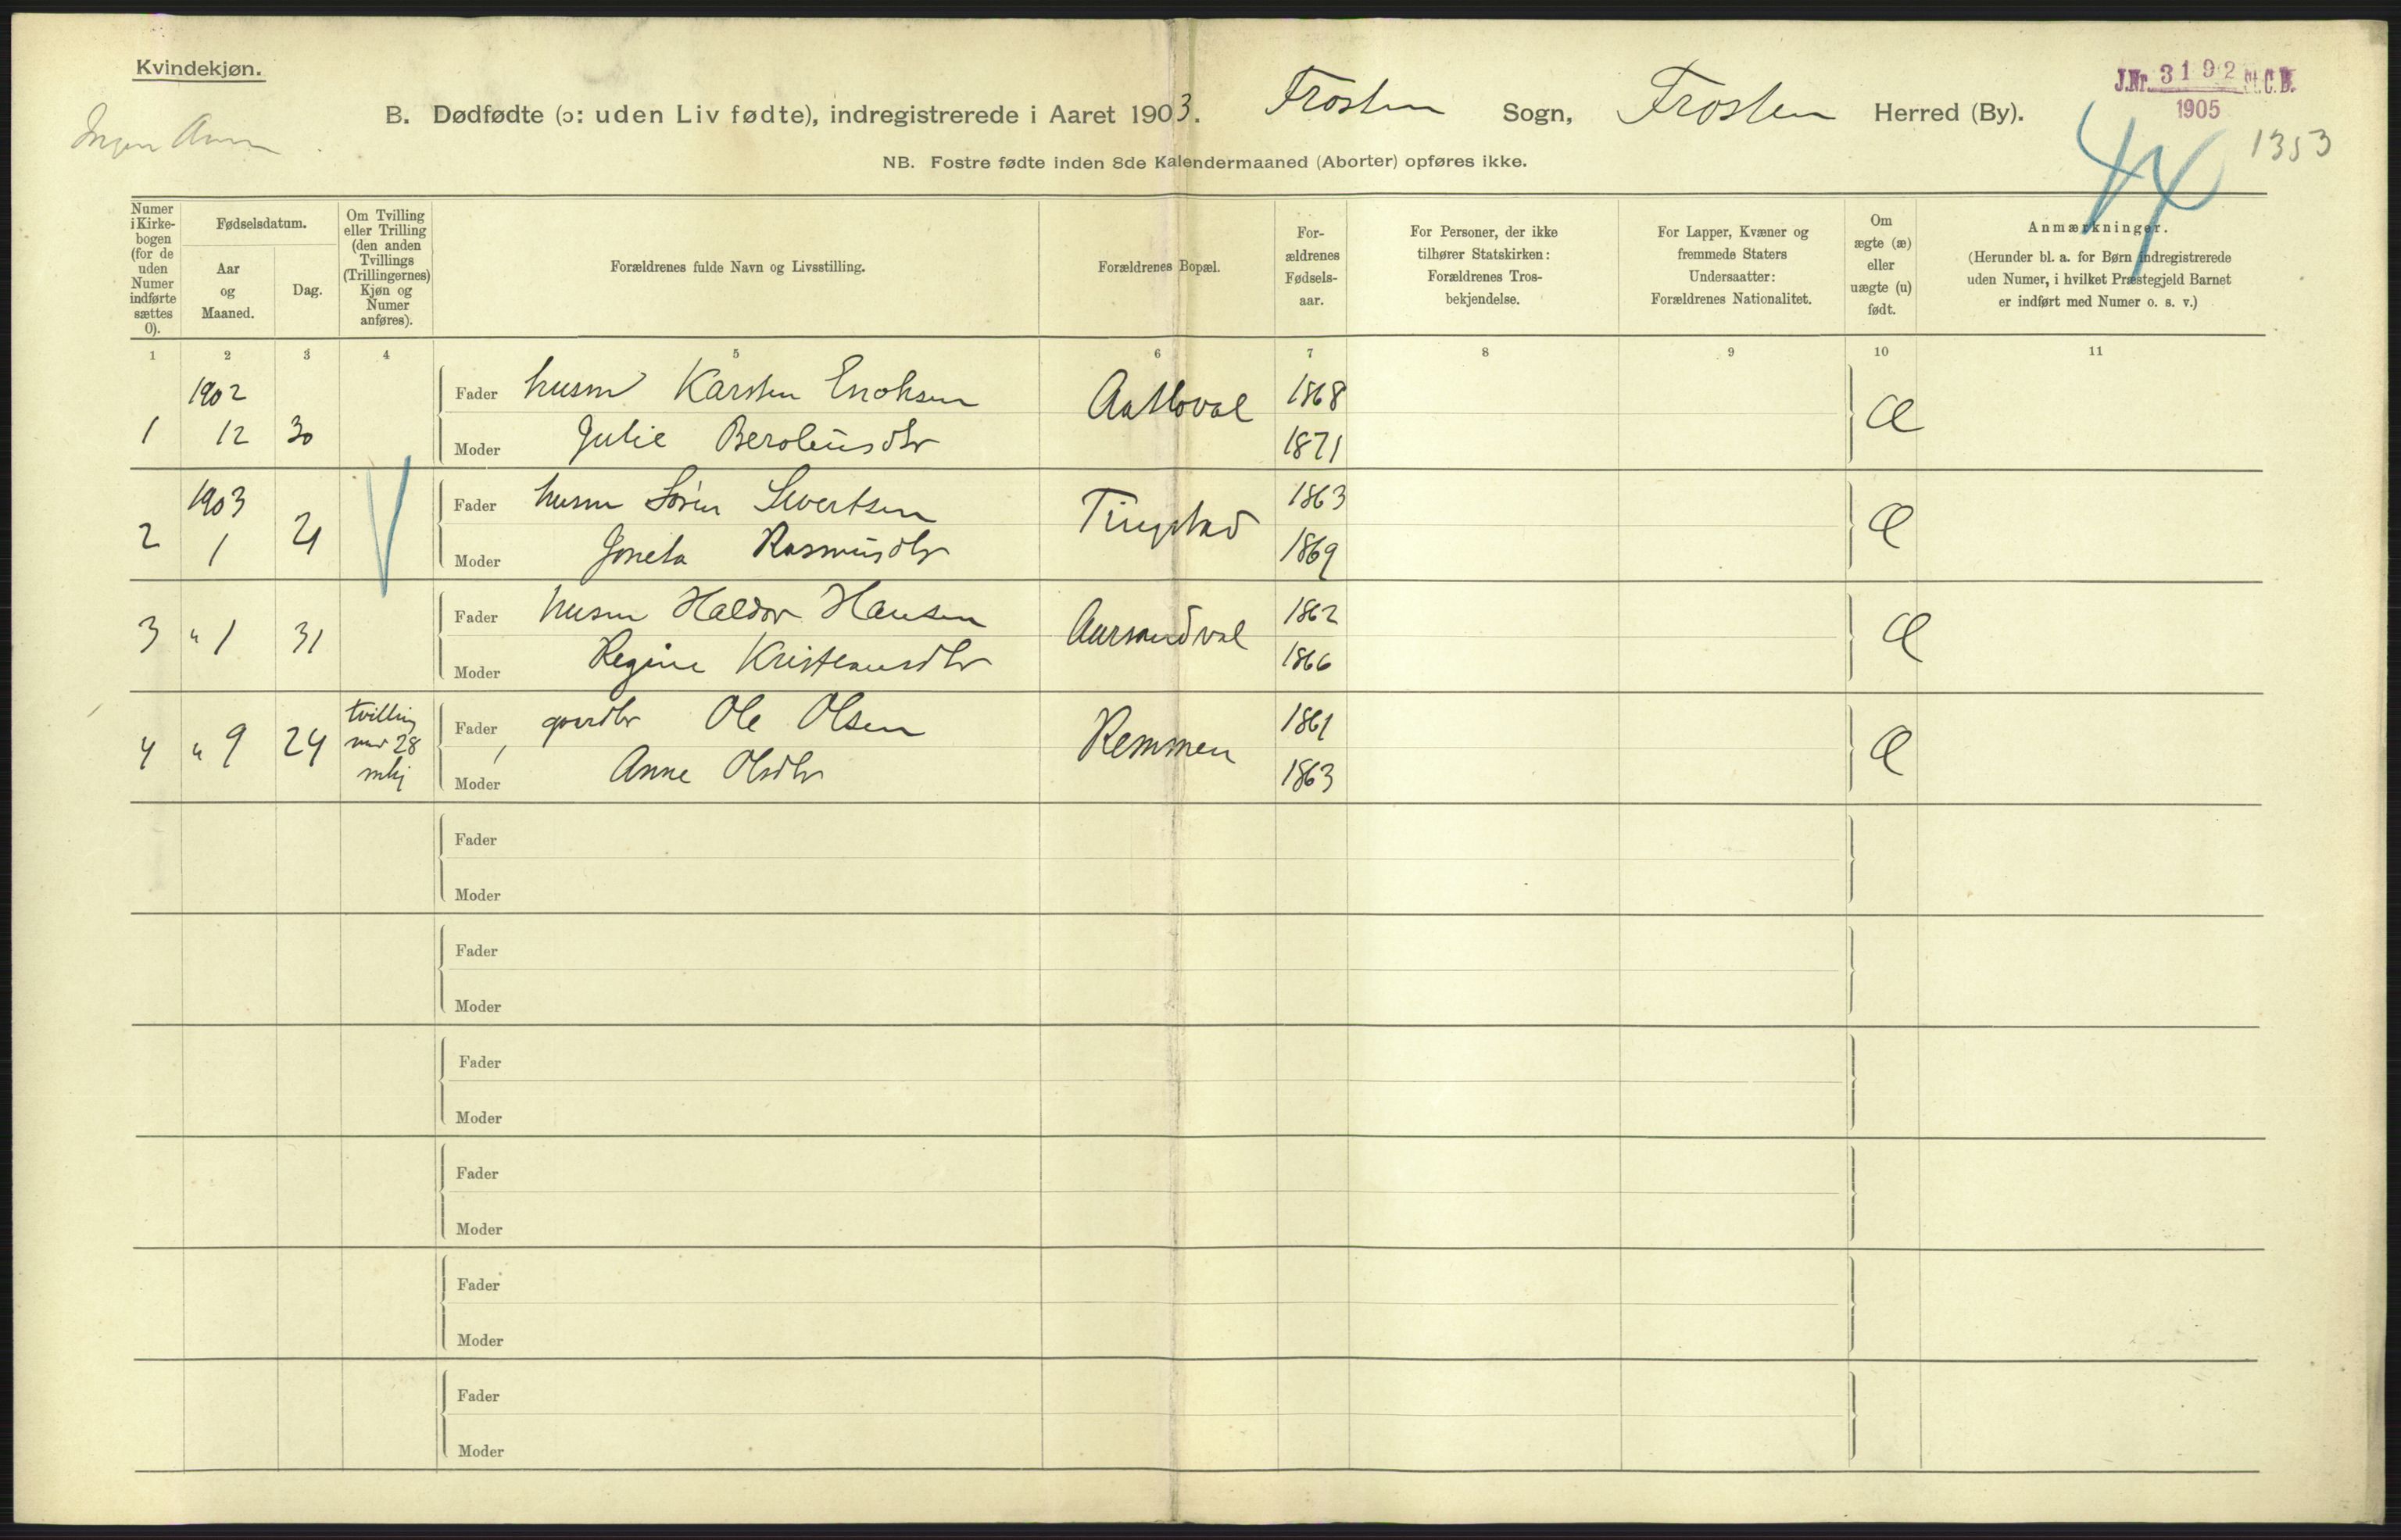 Kvindekjøn.
J.Nr. 3192 St.C.B.
1905
1353
44
B. Dødfødte (ɔ: uden Liv fødte), indregistrerede i Aaret 1903. Frosten Sogn, Frosten Herred (By).
NB. Fostre fødte inden 8de Kalendermaaned (Aborter) opføres ikke.
Numer i Kirke-bogen (for de uden Numer indførte sættes 0).
Fødselsdatum.
Aar og Maaned.
Dag.
Om Tvilling eller Trilling (den anden Tvillings (Trillingernes) Kjøn og Numer anføres).
Forældrenes fulde Navn og Livsstilling.
Forældrenes Bopæl.
For-ældrenes Fødsels-aar.
For Personer, der ikke tilhører Statskirken: Forældrenes Tros-bekjendelse.
For Lapper, Kvæner og fremmede Staters Undersaatter: Forældrenes Nationalitet.
Om ægte (æ) eller uægte (u) født.
Anmærkninger.
(Herunder bl. a. for Børn indregistrerede uden Numer, i hvilket Præstegjeld Barnet er indført med Numer o. s. v.)
1 2 3 4 5 6 7 8 9 10 11
1902
Fader husm Karsten Enoksen 1868
1 12 30 Æ
Moder Julie 1871
1903
Fader husm Sören Sivertsen Tingstad 1863
2 1 21 Æ
Moder Joneta Rasmusdtr 1869
Fader husm Haldor Hansen 1862
3 " 1 31 Æ
Moder Regine Kristiansdtr 1866
tvilling
Fader gaardbr Ole Olsen 1861
4 " 9 24 med 28 Remmen Æ
mkj
Moder Anne Olsdtr 1863
Fader
Moder
Fader
Moder
Fader
Moder
Fader
Moder
Fader
Moder
Fader
Moder